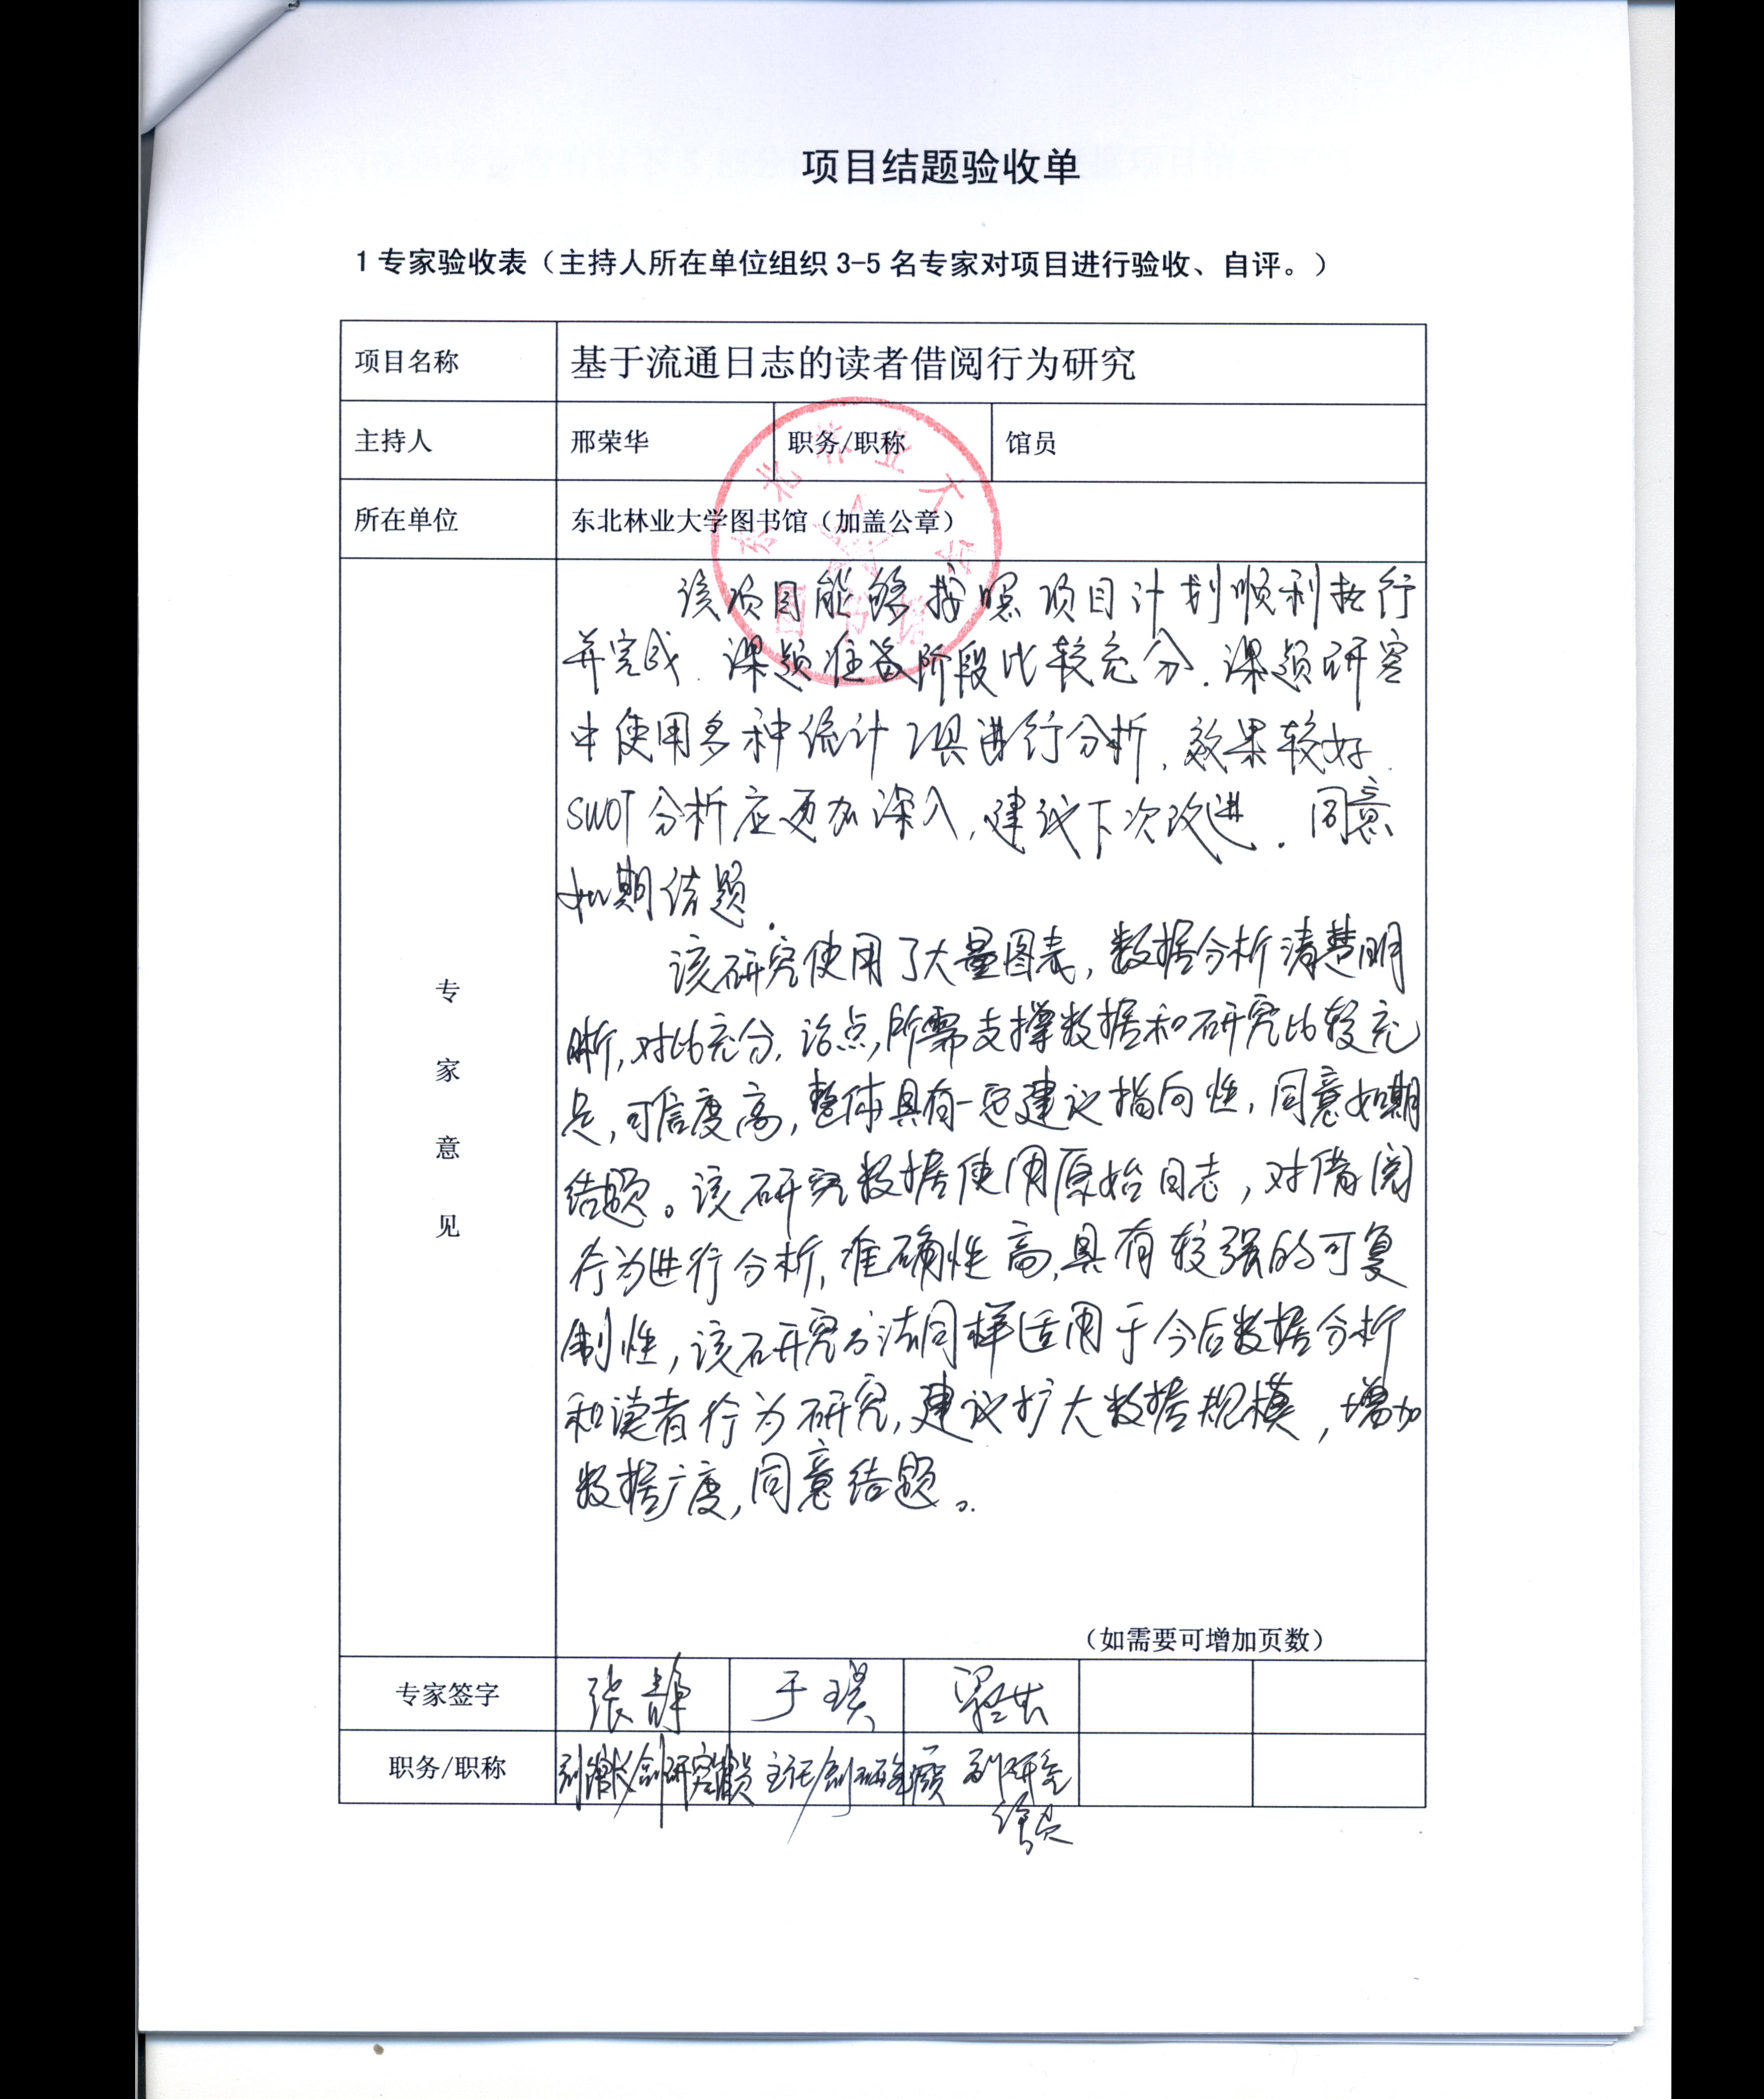 项目结题验收单
1 专家验收表（主持人所在单位组织 3-5 名专家对项目进行验收、自评。）
项目名称 基于流通日志的读者借阅行为研究
主持人 邢荣华 职务/职称 馆员
所在单位 东北林业大学图书馆（加盖公章）
东北林业大学
图书馆
专家意见
该项目能够按照项目计划顺利执行
并完成. 课题准备阶段比较充分. 课题研究
中使用多种统计工具进行分析, 效果较好.
SWOT分析应更加深入, 建议下次改进. 同意
如期结题.
该研究使用了大量图表, 数据分析清楚明
晰, 对比充分, 论点, 所需支撑数据和研究比较充
足, 可信度高, 整体具有一定建议指向性, 同意如期
结题。该研究数据使用原始日志, 对借阅
行为进行分析, 准确性高, 具有较强的可复
制性, 该研究方法同样适用于今后数据分析
和读者行为研究, 建议扩大数据规模, 增加
数据广度, 同意结题。
（如需要可增加页数）
专家签字 张静 于琪
职务/职称 副馆长/副研究馆员 主任/副研究馆员 副研究
馆员